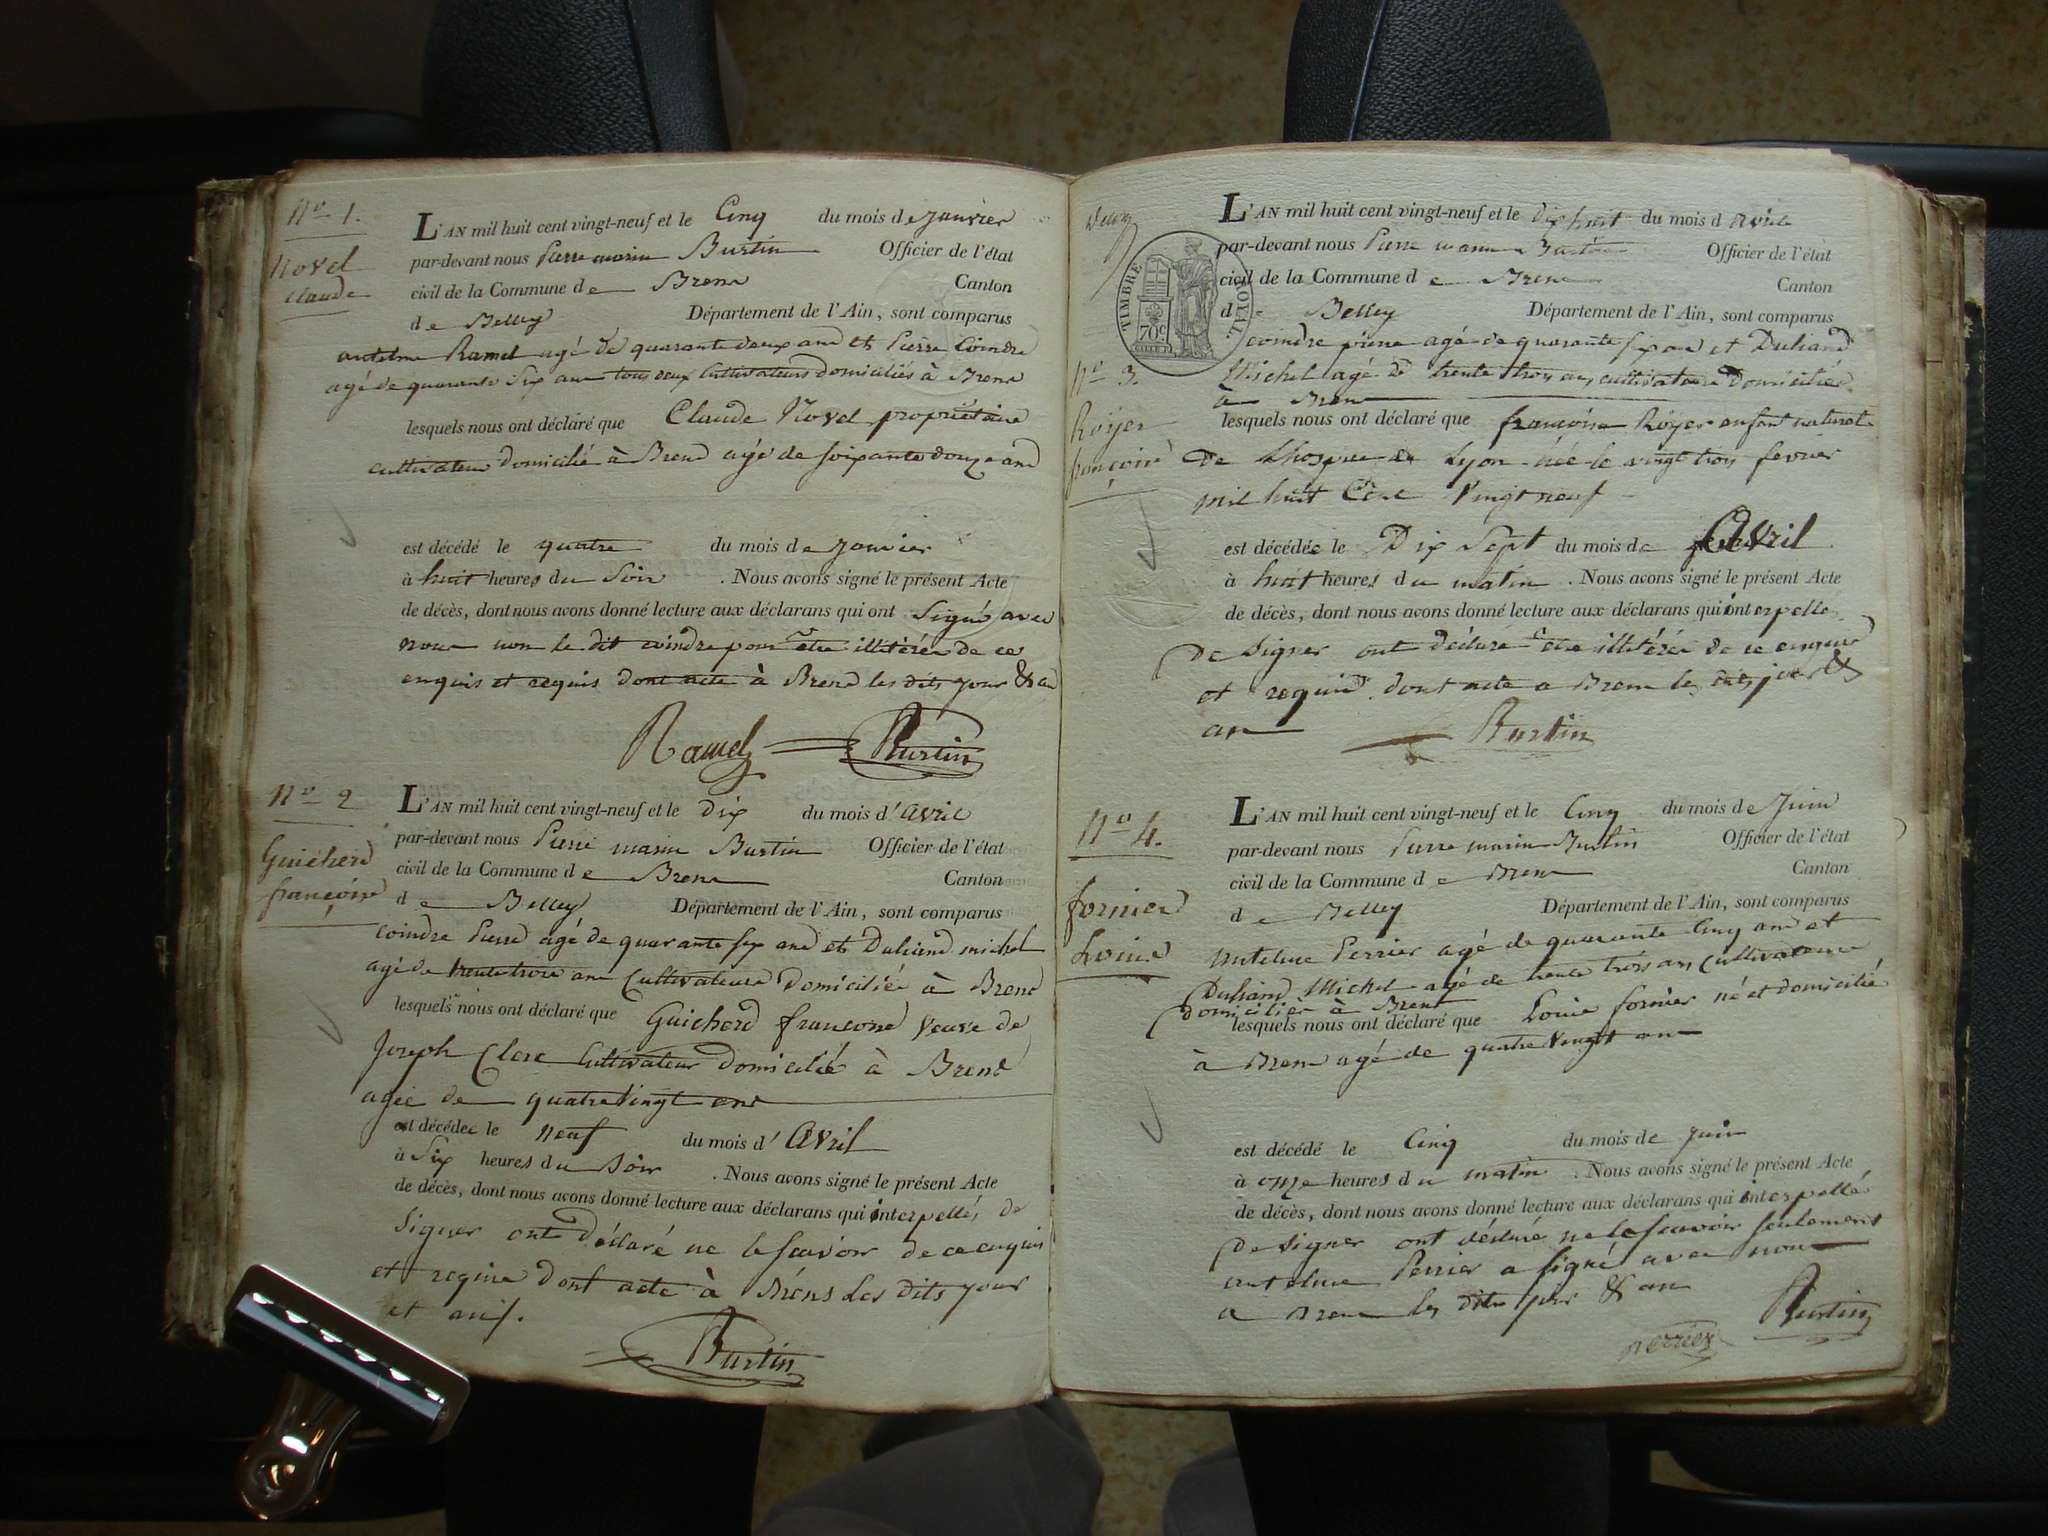 No 1.
Novel
Claude
L'AN mil huit cent vingt-neuf et le Cinq du mois de Janvier
par-devant nous Pierre marin Burtin Officier de l'état
civil de la Commune de Brens Canton
de Belley Département de l'Ain, sont comparus
antelme Ramel agé de quarante deux ans et Pierre Coindre
agé de quarante Six ans tous deux Cultivateurs domiciliés à Brens
lesquels nous ont déclaré que Claude Novel propriétaire
cultivateur domicilié à Brens agé de soixante douze ans
est décédé le quatre du mois de Janvier
à huit heures du Soir . Nous avons signé le présent Acte
de décès, dont nous avons donné lecture aux déclarans qui ont Signé avec
nous non le dit coindre pour etre illitérée de ce
enquis et requis dont acte à Brens les dits jour & an
Ramel Burtin
No 2
Guicherd
françoise
L'AN mil huit cent vingt-neuf et le dix du mois d'avril
par-devant nous Pierre marin Burtin Officier de l'état
civil de la Commune de Brens Canton
de Belley Département de l'Ain, sont comparus
coindre Pierre agé de quarante six ans et Duliand michel
agé de trente trois ans Cultivateurs domiciliés à Brens
lesquels nous ont déclaré que Guicherd françoise veuve de
Joseph Clerc Cultivateur domicilié à Brens
agée de quatre vingt ans
est décédée le neuf du mois d'Avril
à Six heures du Soir . Nous avons signé le présent Acte
de décès, dont nous avons donné lecture aux déclarans qui interpellés de
Signer ont déclaré ne le scavoir de ce enquis
et requis dont acte à Brens Les dits jour
et an
Burtin
Deux
TIMBRE ROYAL
70c
No 3.
Röyer
françoise
L'AN mil huit cent vingt-neuf et le dix huit du mois d avril
par-devant nous Pierre marin Burtin Officier de l'état
civil de la Commune de Brens Canton
de Belley Département de l'Ain, sont comparus
coindre pierre agé de quarante six ans et Duliand
Michel agé de trente trois ans cultivateurs domiciliés
à Brens
lesquels nous ont déclaré que françoise Röyer enfant naturel
de Lhospice de Lyon née le vingt trois fevrier
mil huit Cent Vingt neuf
est décédée le Dix Sept du mois de Avril
à huit heures du matin . Nous avons signé le présent Acte
de décès, dont nous avons donné lecture aux déclarans qui interpellé
de Signer ont déclaré etre illitérée de ce enquis
et requis dont acte a Brens les dits jour &
an
Burtin
No 4.
fornier
Louis
L'AN mil huit cent vingt-neuf et le Cinq du mois de Juin
par-devant nous Pierre marin Burtin Officier de l'état
civil de la Commune de Brens Canton
de Belley Département de l'Ain, sont comparus
antelme Perrier agé de quarante Cinq ans et
Duliand Michel agé de trente trois ans Cultivateurs
domiciliés à Brens
lesquels nous ont déclaré que Louis fornier né et domicilié
à Brens agé de quatre Vingt ans
est décédé le Cinq du mois de Juin
à onze heures du matin . Nous avons signé le présent Acte
de décès, dont nous avons donné lecture aux déclarans qui interpellé
de signer ont déclaré ne le scavoir seulement
antelme Perrier a signé avec nous
a Brens les dits jour & an
Burtin
perrier